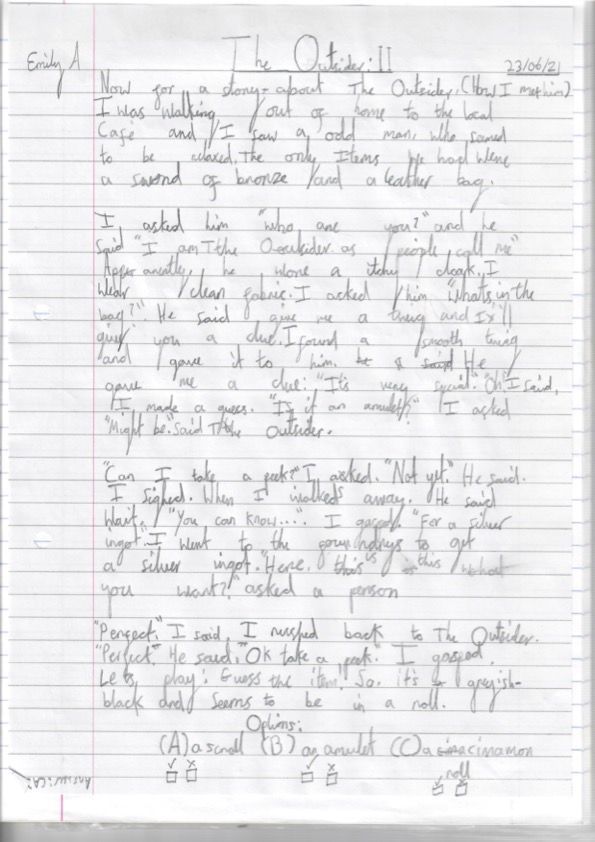 The Outsider: II
Emily A
23/06/21
Now for a story about The Outsider. (How I met him)
I was walking out of home to the local
Cafe and I saw a odd man, who
to be relaxed. The only Items he had were
a sword of bronze and a leather bag.
I asked him "who are you?" and he
said "I am The Outsider as people call me"
Apparently, he wore a itchy cloak. I
wear clean fabric. I asked him "whats in the
bag?". He said give me a thing and I'll
give you a clue. I found a smooth thing
and I gave it to him. He
gave me a clue: "It's very special." Oh" I said,
I made a guess. "Is it an amulet?" I asked
"Might be." said The Outsider.
"Can I take a peek?" I asked. "Not yet." He said.
I sighed. When I walked away. He said
Wait. "You can know...." I gasped. "For a silver
ingot." I went to the to get
a silver ingot. "Here. is this what
you want?" asked a person
"Perfect." I said, I rushed back to The Outsider.
"Perfect." He said, "Ok take a peek." I gasped.
Lets play: Guess the item! So. it's greyish-
black and seems to be in a roll.
Options:
(A) a scroll (B) an amulet (C) a cinnamon
roll